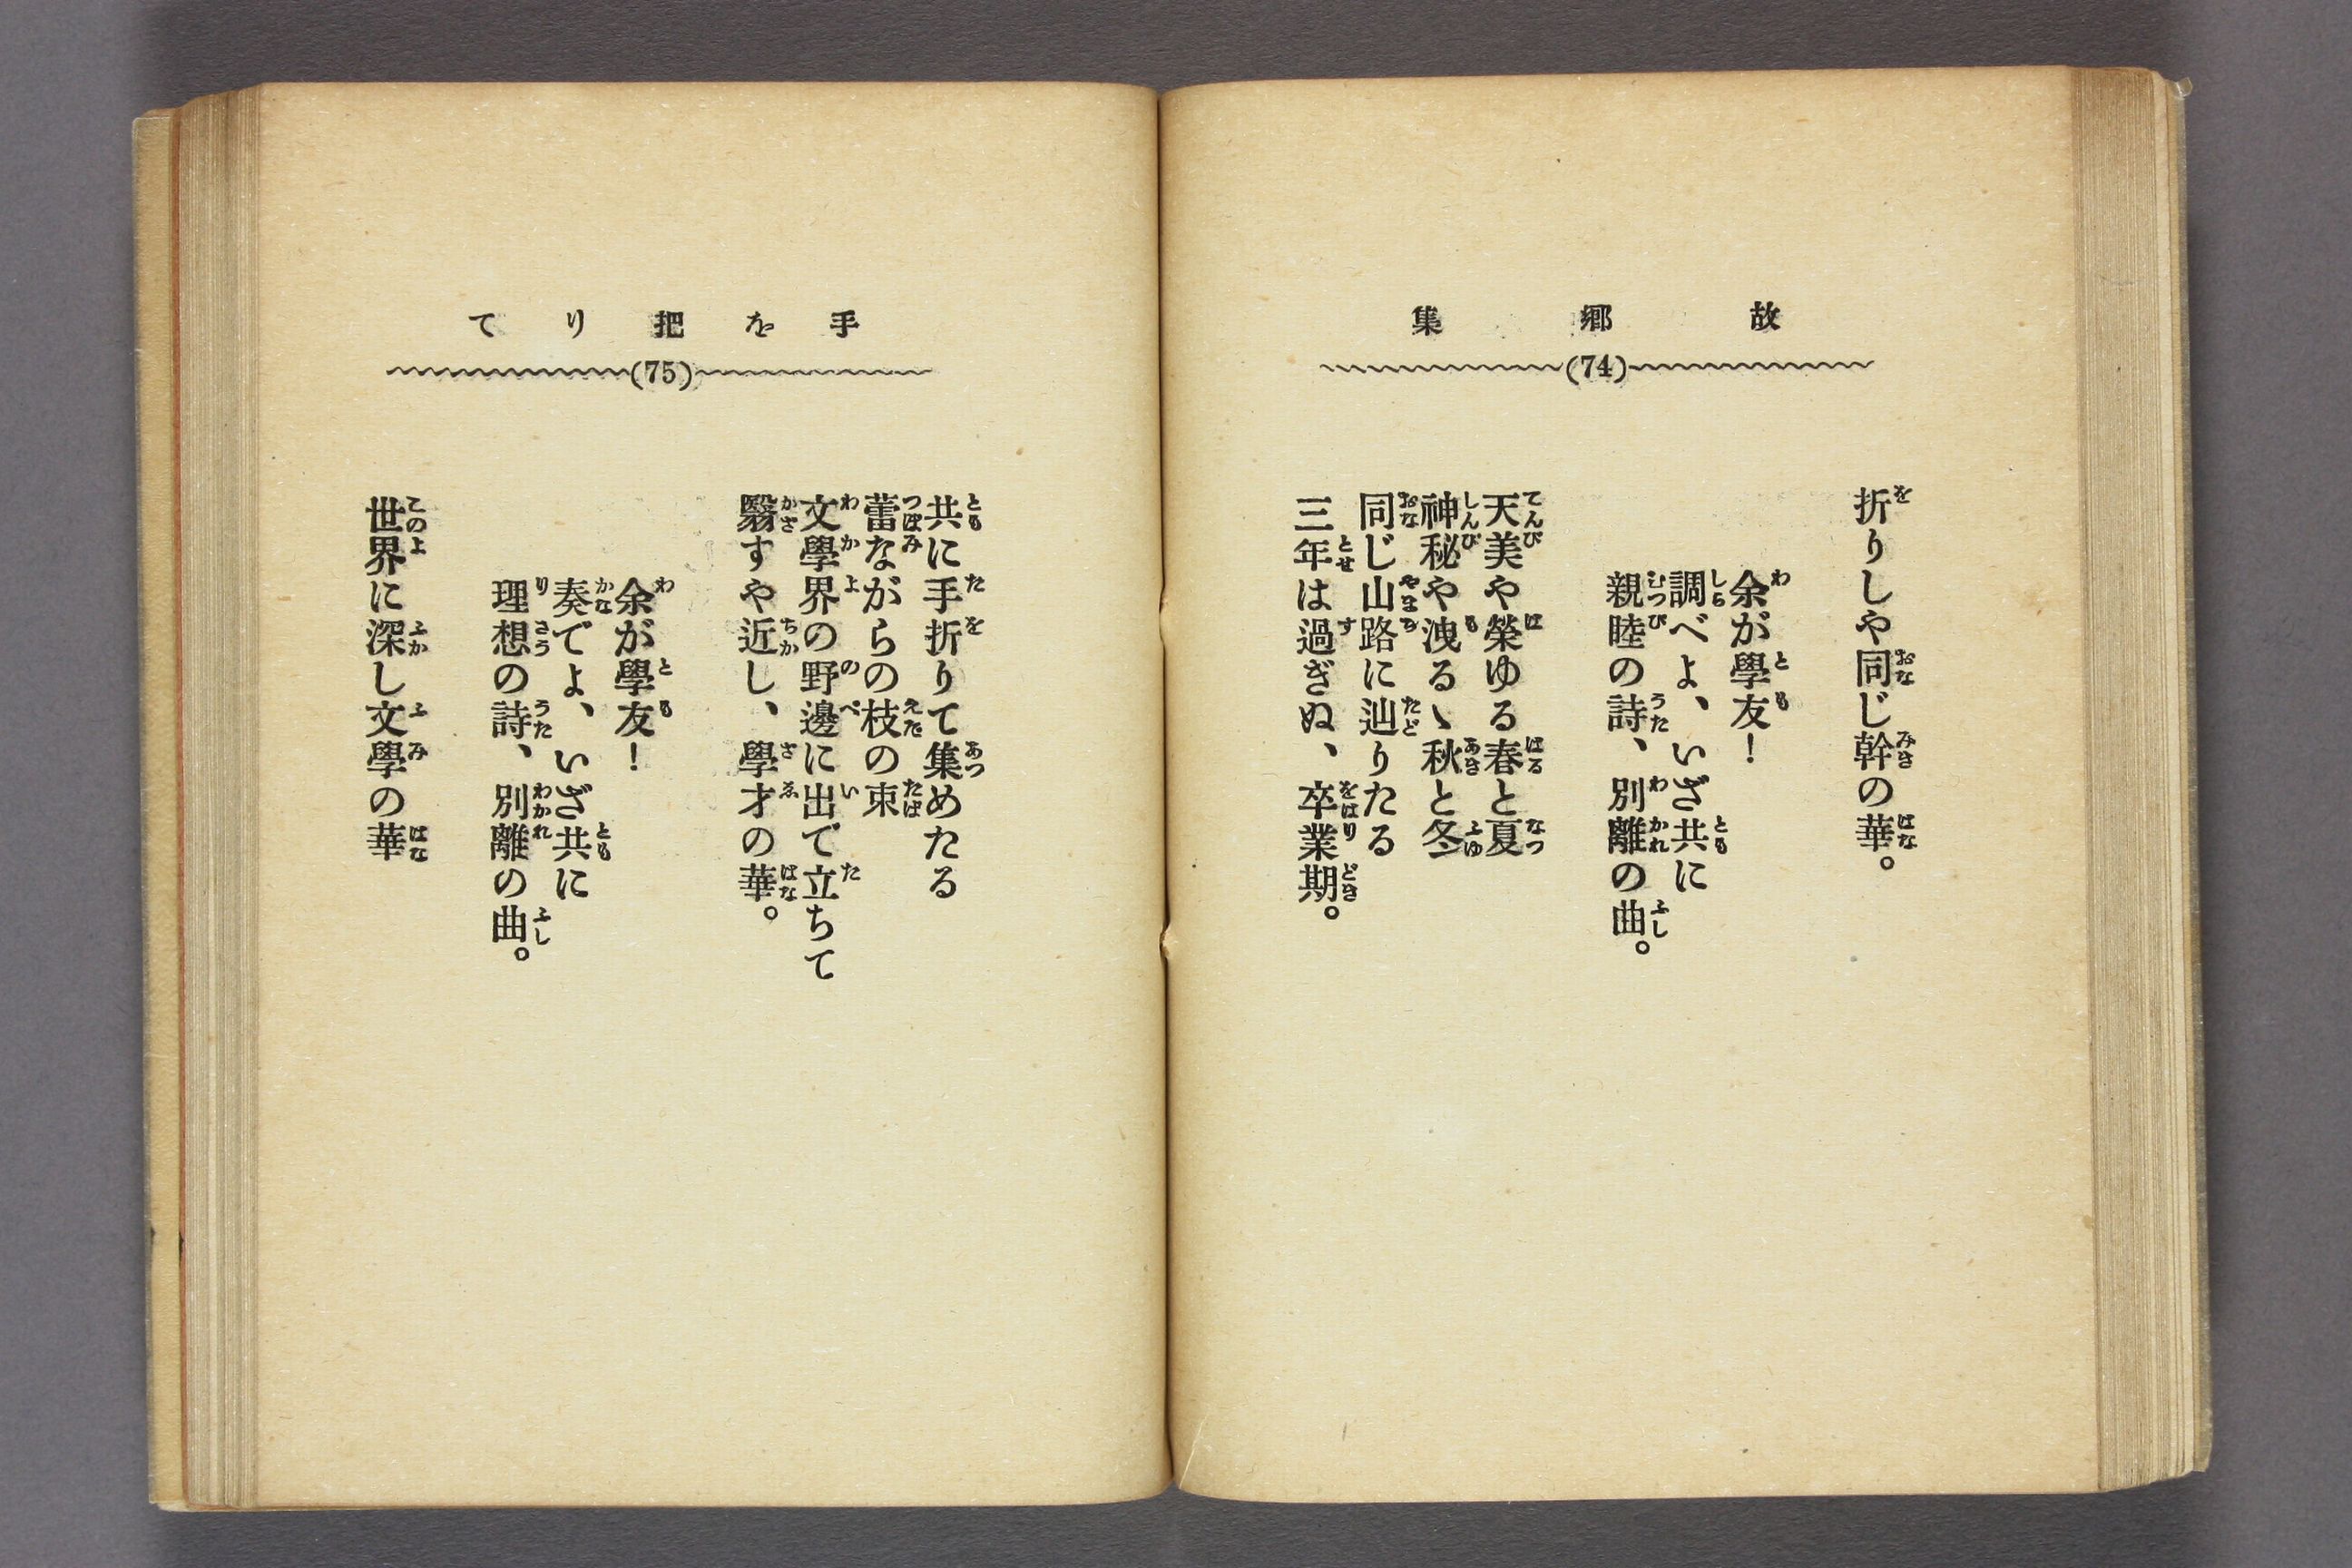 故郷集
(74)
折りしや同じ幹の華。
余が學友！
調べよ、いざ共に
親睦の詩、別離の曲。
天美や榮ゆる春と夏
神秘や洩るヽ秋と冬
同じ山路に辿りたる
三年は過ぎぬ、卒業期。
手を把りて
(75)
共に手折りて集めたる
蕾ながらの枝の束
文學界の野邊に出で立ちて
翳すや近し、學才の華。
余が學友！
奏でよ、いざ共に
理想の詩、別離の曲。
世界に深し文學の華